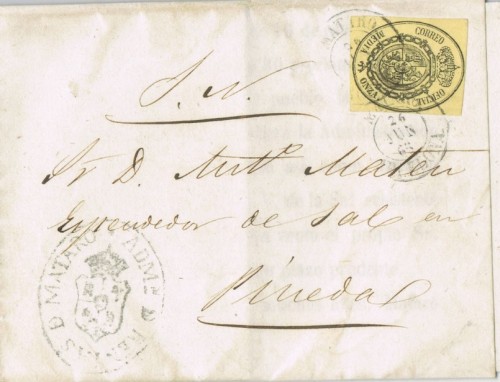 MATARO
CORREO OFICIAL
MEDIA ONZA
26
JUN
S. N.
Sr D. Antº Mateu
Espendedor de Sal en
Pineda
ADMON D RENTAS D MATARO